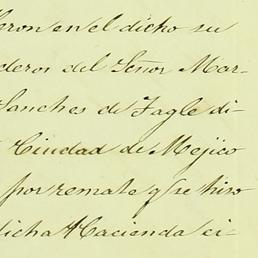 eron en el dicho su
deros del Señor Mar-
Sanches de Tagle di-
Ciudad de Mejico
por remate y se hiso
dicha Hacienda ci-